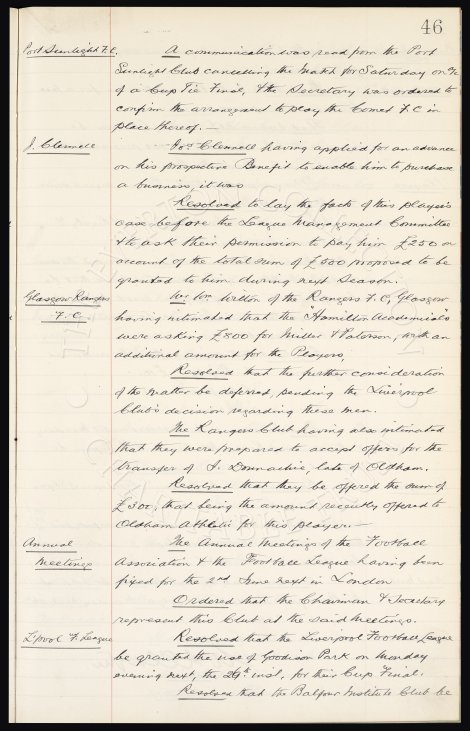 46
Port Sunlight F.C. A communication was read from the Port
Sunlight Club cancelling the match for Saturday on a/c
of a Cup Tie Final, & the Secretary was ordered to
confirm the arrangement to play the Comet F.C in
place thereof.—
J. Clennell Jos. Clennell having applied for an advance
on his prospective Benefit to enable him to purchase
a business, it was
Resolved to lay the facts of this player's
case before the League Management Committee
& to ask their permission to pay him £250 on
account of the total sum of £500 proposed to be
granted to him during next season.
Glasgow Rangers Wm Wilton of the Rangers F.C, Glasgow
F.C. having intimated that the "Hamilton Academicals"
were asking £800 for Miller & Paterson, with an
additional amount for the Players,
Resolved that the further consideration
of the matter be deferred, pending the Liverpool
Club's decision regarding these men.
The Rangers Club having also intimated
that they were prepared to accept offers for the
transfer of J. Donnachie, late of Oldham.
Resolved that they be offered the sum of
£300, that being the amount recently offered to
Oldham Athletic for this player.—
Annual The Annual Meetings of the Football
Meetings Association & the Football League having been
fixed for the 2nd June next in London
Ordered that the Chairman & Secretary
represent this Club at the said Meetings.
L'pool F. League Resolved that the Liverpool Football League
be granted the use of Goodison Park on Monday
evening next, the 29th inst, for their Cup Final.
Resolved that the Balfour Institute Club be